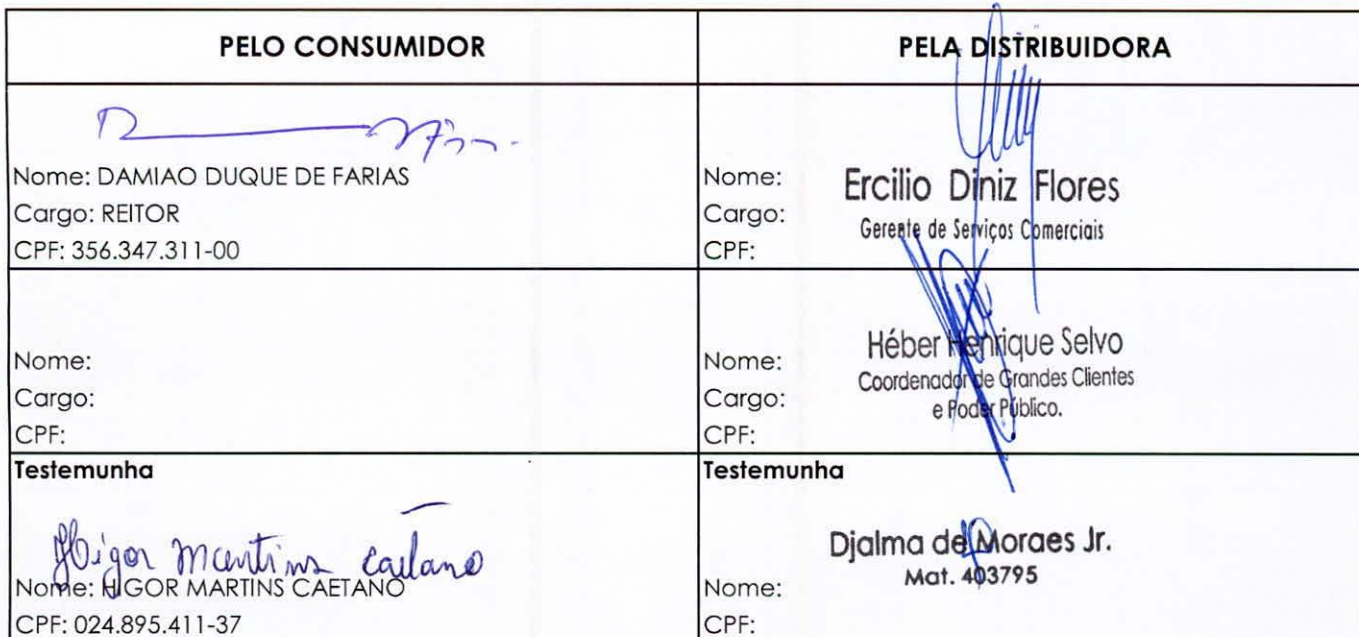 PELO CONSUMIDOR
PELA DISTRIBUIDORA
Nome: DAMIAO DUQUE DE FARIAS
Cargo: REITOR
CPF: 356.347.311-00
Nome: Ercilio Diniz Flores
Cargo: Gerente de Serviços Comerciais
CPF:
Nome:
Cargo:
CPF:
Nome: Héber Henrique Selvo
Cargo: Coordenador de Grandes Clientes
e Poder Público.
CPF:
Testemunha
Higor Martins Caetano
Nome: HIGOR MARTINS CAETANO
CPF: 024.895.411-37
Testemunha
Djalma de Moraes Jr.
Mat. 403795
Nome:
CPF: